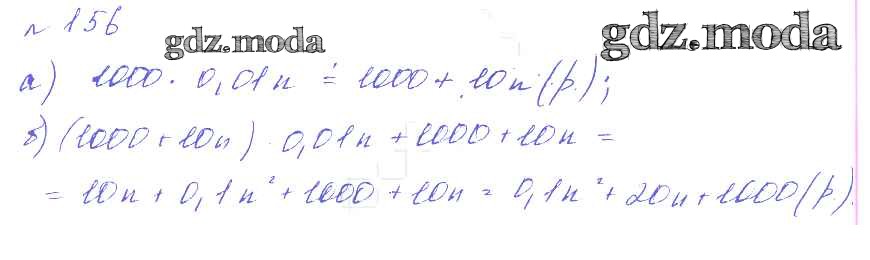 № 156
gdz.moda
gdz.moda
а) 1000 · 0,01n = 1000 + 10n (р.);
б) (1000 + 10n) · 0,01n + 1000 + 10n =
= 10n + 0,1n² + 1000 + 10n = 0,1n² + 20n + 1000 (р).